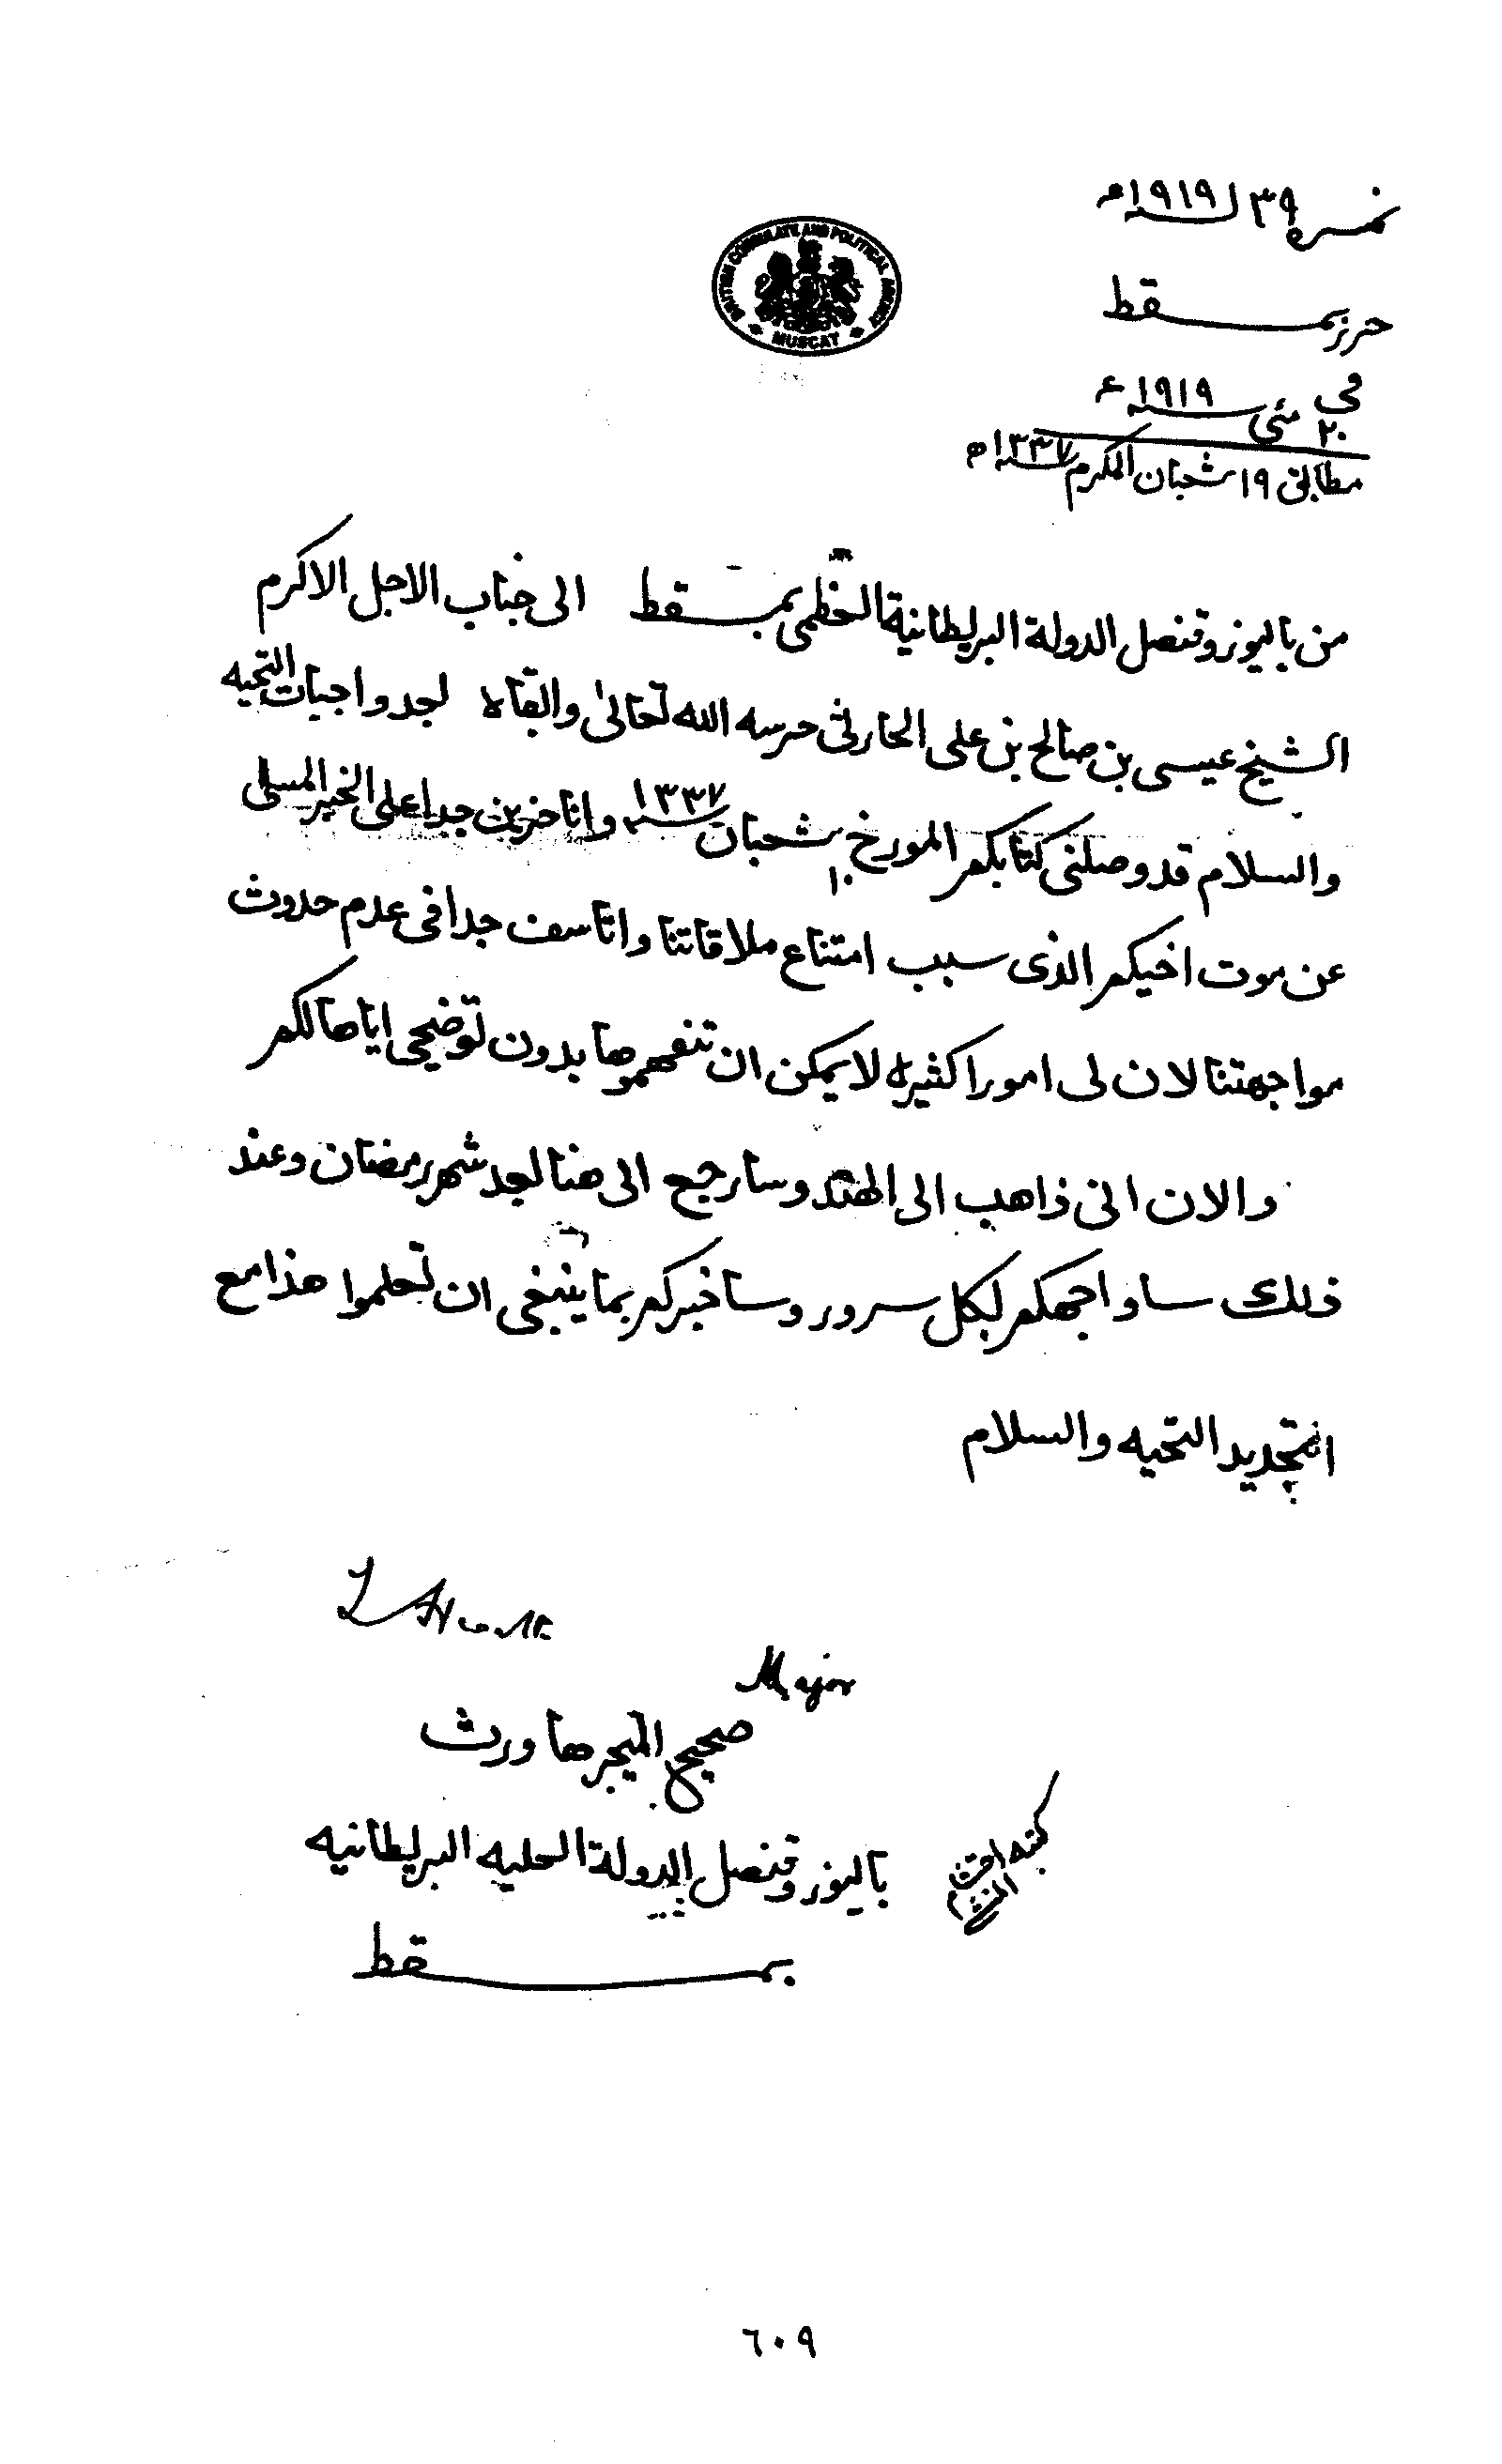 نمبر ٣٩ ١٩١٩م
BRITISH CONSULATE AND POLITICAL AGENCY
MUSCAT
حرر بمسقط
في ٢٠ مئي ١٩١٩ء
مطابق ١٩ شعبان المكرم ١٣٣٧ه
من باليوز وقنصل الدولة البريطانية العظمى بمسقط الى جناب الاجل الاكرم
الشيخ عيسى بن صالح بن على الحارثى حرسه الله تعالىٰ وابقاه لعد واجبات التحيه
والسلام قد وصلنى كتابكم المورخ ١٠ شعبان ١٣٣٧ وانا حزين جدا على الخبر
عن موت اخيكم الذى سبب امتناع ملاقاتنا واتاسف جدا فى عدم حدوث
مواجهتنا لان لى امورا كثيره لا يمكن ان تفهموها بدون توضيحى اياها لكم
والان انى ذاهب الى الهند وسارجع الى هنا بعد شهر رمضان وعند
ذلك ساواجهكم بكل سرور وساخبركم بما ينبغى ان تعلموا هذا مع
تجديد التحيه والسلام
Major
صحيح الميجر هاورث
باليوز وقنصل الدولة العليه البريطانيه
بمسقط
كتبه
٦٠٩